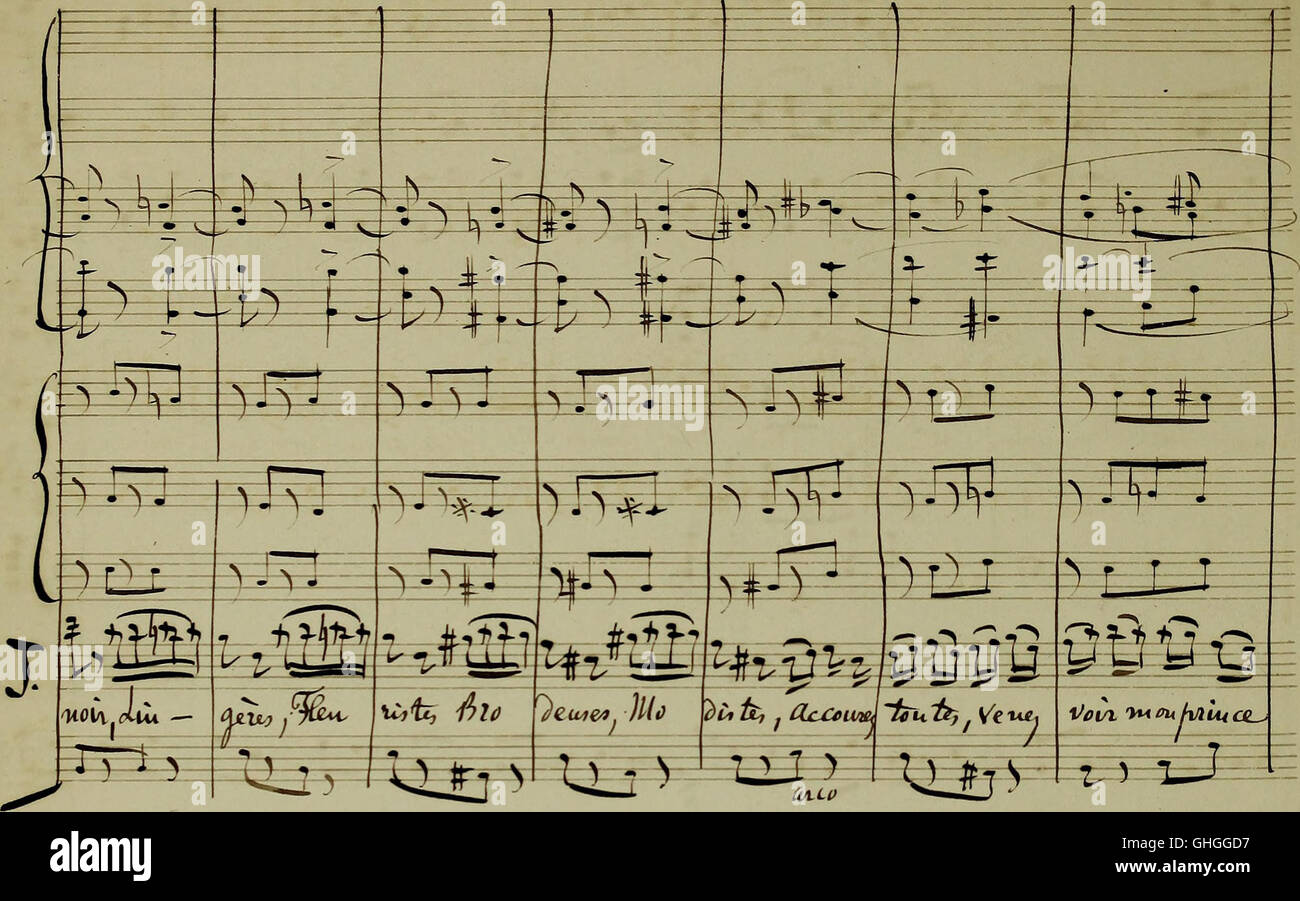 J.
noir, Lin - gères, Fleu ristes Bro deuses, Mo distes, accourez toutes, venez voir mon prince
arco
alamy stock photo
GHGGD7
www.alamy.com